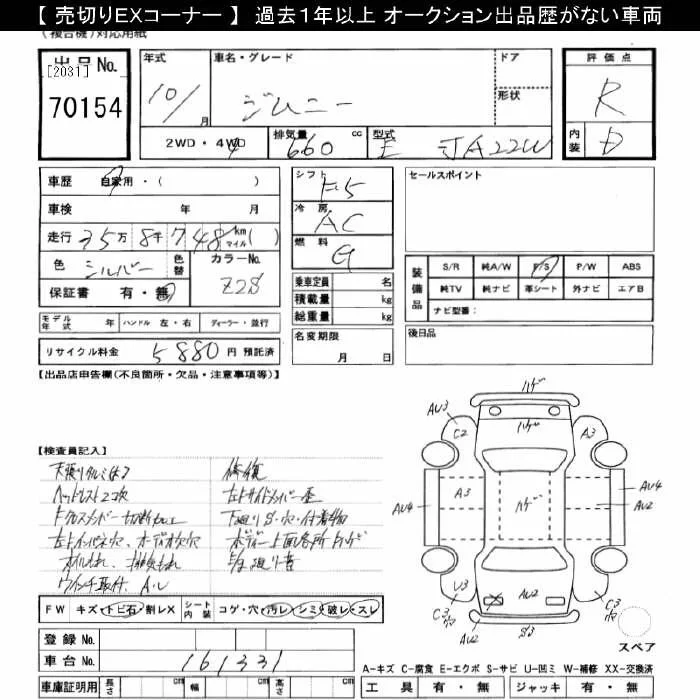 【 売切りEXコーナー 】 過去1年以上 オークション出品歴がない車両
(複合機)対応用紙
出品No.
[2031]
70154
年式 10/ 月
車名・グレード ジムニー
ドア
形状
2WD・4WD
排気量 660 cc
型式 E-JA22W
評価点 R
内装 D
車歴 自家用・( )
車検 年 月
走行 35万8千748km マイル ( )
色 シルバー 色替
カラーNo. Z2S
保証書 有・無
モデル年式 年 ハンドル 左・右 ディーラー・並行
リサイクル料金 5880円 預託済
シフト F5
冷房 AC
燃料 G
乗車定員 名
積載量 kg
総重量 kg
名変期限 月 日
セールスポイント
装備品
S/R 純A/W P/S P/W ABS
純TV 純ナビ 革シート 外ナビ エアB
ナビ型番:
後日品
【出品店申告欄(不良箇所・欠品・注意事項等)】
【検査員記入】
ヘッドレスト2コ欠
左右サイドメンバー歪
下廻りS・穴・付着物
ウインチ取付、A・U
修復
ハゲ
ハゲ
AU3
C2
A3
A3
ハゲ
AU4
AU4
AU2
U3
AU2
AU2
S3
FW キズ・トビ石・割レX シート内装 コゲ・穴・汚レ・シミ・破レ・スレ
登録No.
車台No. 161331
車庫証明用 長さ cm 幅 cm 高さ cm
スペア
A-キズ C-腐食 E-エクボ S-サビ U-凹ミ W-補修 XX-交換済
工具 有・無 ジャッキ 有・無